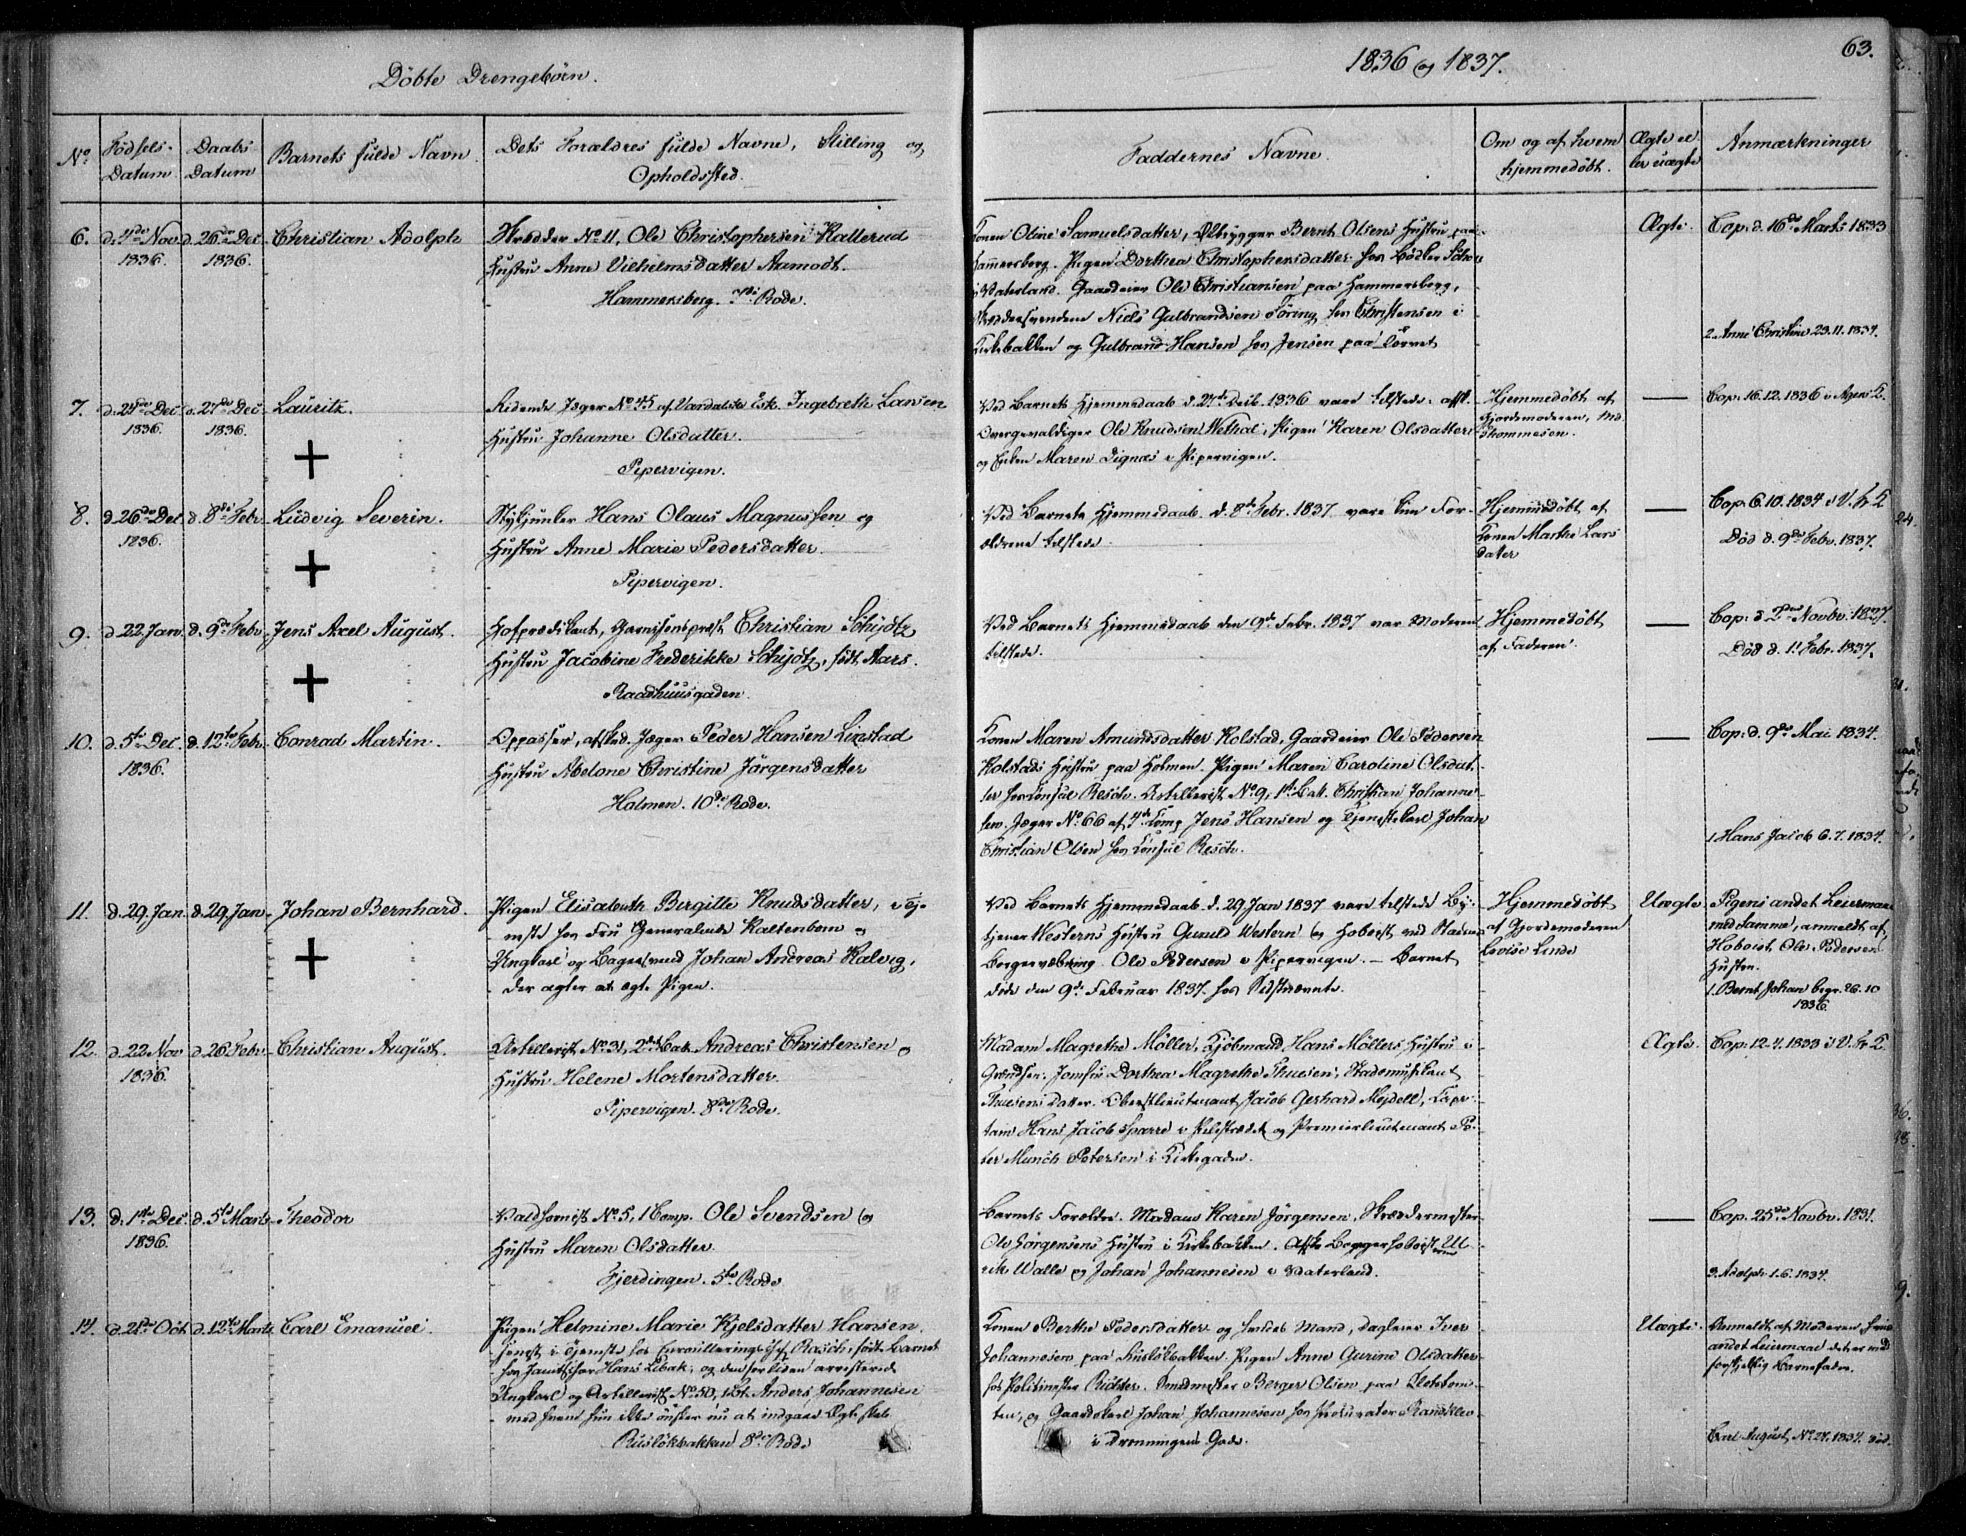 63.
Döbte Drengebörn.
1836 og 1837.
No.
Födsels-Datum
Daabs Datum
Barnets fulde Navn.
Dets Forældres fulde Navne, Stilling og Opholdssted.
Faddernes Navne.
Om og af hvem hjemmedöbt.
Ægte eller uægte
Anmærkninger
6. d. 4de Nov 1836. d. 26de Dec 1836. Christian Adolph
No 11, Ole Christophersen Katterud
Hustru Anne Vilhelmsdatter Aamodt.
Hammersberg. 7de Rode.
Konen Oline Samuelsdatter, Ølbrygger Bernt Olsens Hustru paa
Hammersberg. Pigen Dorthea Christophersdatter hos Bödker
i Vaterland. Gaardeier Ole Christiansen paa Hammersberg,
Niels Gulbrandsen Föring hos Christensen i
Kirkebakken og Gulbrand Hansen hos Jensen paa Torvet
Ægte.
Cop: d. 16de Marts 1833
2. Anne Christine 23.11.1834.
7. d. 24de Dec 1836. d. 27de Dec. 1836. Lauritz.
Ridende Jæger No 45 af Værdalske Esk. Ingebreth Larsen
Hustru Johanne Olsdatter.
Pipervigen.
Ved Barnets Hjemmedaab d. 27de Decb. 1836 vare tilstede: afsk.
Ole Knudsen Hethal, Pigen Karen Olsdatter
og Enken Maren Dignæs i Pipervigen.
Hjemmedöbt af
Gjordemoderen, Md.
Thommesen.
Cop: 16.12.1836 i Agers K.
8. d. 26de Dec 1836. d. 8de Febr. Ludvig Severin.
Stykjunker Hans Olaus Magnussen og
Hustru Anne Marie Pedersdatter.
Pipervigen.
Ved Barnets Hjemmedaab d. 8de Febr. 1837 vare kun For-
ældrene tilstede.
Hjemmedöbt af
Konen Marthe Lars
datter
Cop: 6.10.1834 i V. Fr K
Död d. 9de Febr. 1837.
9. d. 22 Jan. d. 9de Febr. Jens Axel August.
Hofprædikant, Garnisonspræst Christian Schjötz
Hustru Jacobine Frederikke Schjötz, född Aars.
Raadhuusgaden.
Ved Barnets Hjemmedaab den 9de Febr. 1837 var Moderen
tilstede.
Hjemmedöbt
af Faderen.
Cop: d. 2den Novbr. 1827.
Död d. 11 Febr. 1837.
10. d. 5te Dec. 1836. d. 12te Febr. Conrad Martin.
Oppasser, afsked. Jæger Peder Hansen Linstad
Hustru Abelone Christine Jörgensdatter
Holmen. 10de Rode.
Konen Maren Amundsdatter Kolstad, Gaardeier Ole Pedersen
Kolstads Hustru paa Holmen. Pigen Maren Caroline Olsdat-
ter hos Consul Resch. Artillerist No 9, 1st Batt. Christian Johanne-
sen. Jæger No 66 af 4de Comp Jens Hansen og Tjenestekarl Johan
Christian Olsen hos Consul Resch.
Cop: d. 9de Mai 1834.
1. Hans Jacob 6.7.1834.
11. d. 29 Jan. d. 29 Jan. Johan Bernhard.
Pigen Elisabeth Birgitte Knudsdatter, i Tje-
neste hos Fru Generalinde Kaltenborn og
Ungkarl og Bagersvend Johan Andreas Kalvig,
der agter at ægte Pigen.
Ved Barnets Hjemmedaab d. 29 Jan 1837 vare tilstede By-
tjener Westerns Hustru Gunild Western og Hoboist ved Stadens
Borgervæbning Ole Pedersen i Pipervigen. — Barnet
döde den 9de Februar 1837.
Hjemmedöbt
af Gjordemoderen
Lovise Linde
Uægte.
Pigens andet Leiermaal
med samme, anmeldt af
Hoboist Ole Pedersens
Hustru.
1. Bernt Johan begr. 26.10
1836.
12. d. 22 Nov 1836. d. 26 Febr. Christian August.
Artillerist No 31, 2det Batt. Andreas Christensen og
Hustru Helene Mortensdatter.
Pipervigen. 8de Rode.
Madam Magrethe Möller, Kjöbmand Hans Möllers Hustru i
Grændsen. Jomfru Dorthea Magrethe Thuesen, Stadsmusikant
Thuesens Datter. Oberstlieutenant Jacob Gerhard Mejdell, Cap-
tain Hans Jacob Sparre i Pilestrædet og Premierlieutenant Pe-
ter Munch Petersen i Kirkegaden.
Ægte.
Cop: 12.7.1833 i V. Fr K.
13. d. 1ste Dec. 1836. d. 5te Marts Theodor
Valdhornist No 5, 1 Comp. Ole Svendsen og
Hustru Maren Olsdatter.
Fjerdingen. 5te Rode
Barnets Forældre. Madam Karen Jörgensen, Skrædermester
Ole Jörgensens Hustru i Kirkebakken. Afsk. Ul-
rik Walle og Johan Johannesen i Vaterland.
Cop. 25de Novbr. 1831.
3. Adolph 1.6.1834.
14. d. 21de Oct d. 12te Marts Carl Emanuel.
Pigen Helmine Marie Kjelsdatter Hansen,
senest i Tjeneste hos Rasch, födte Barnet
hos Hans Libak, og den arresterede
Ungkarl og Artillerist No 50, 1 Bt. Anders Johannesen
med hvem hun ikke önsker nu at indgaae Ægteskab
Ruslökbakken 8de Rode
Konen Berthe Pedersdatter og hendes Mand, Dagleier Iver
Johannesen paa Ruslökbakken. Pigen Anne Gurine Olsdatter
hos Politimester Richter. Smedmester Berger Olsen paa
og Gaardskarl Johan Johannesen hos Procurator
i Dronningens Gade.
Uægte.
Anmeldt af Moderen hvis
andet Leiermaal det er med
forskjellig Barnefader.
Carl August, No 27. 1834. död.